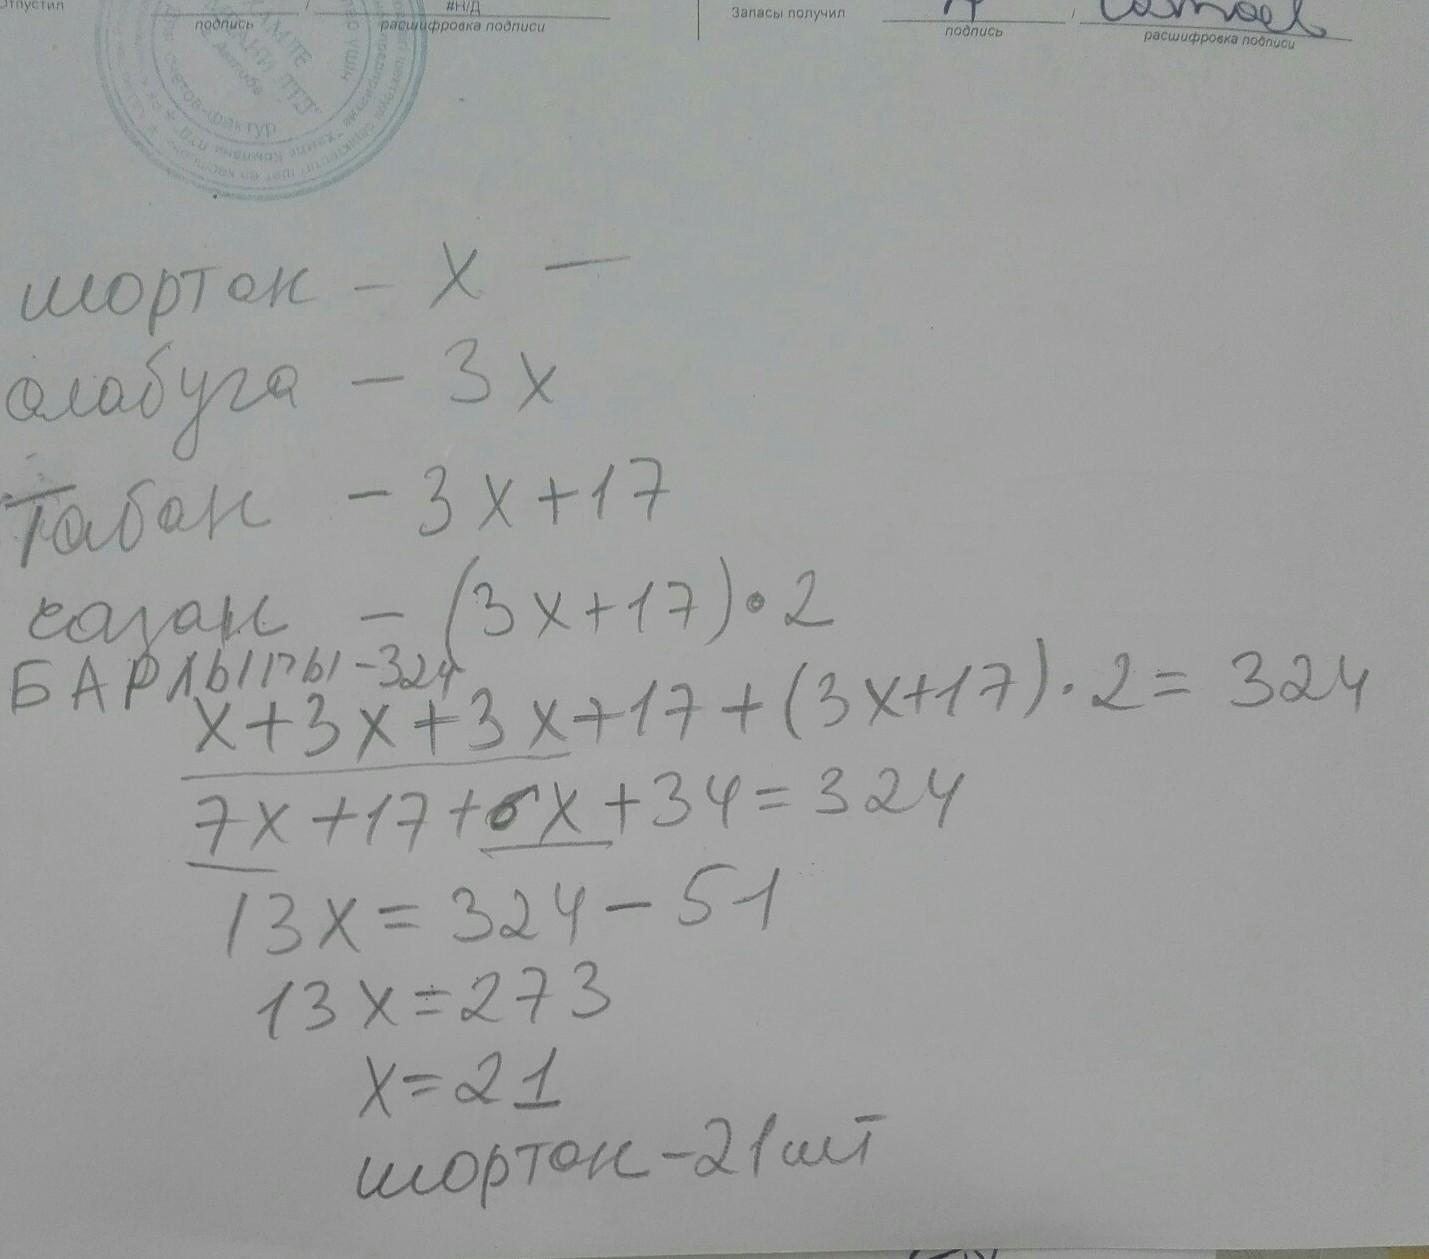 Отпустил / #Н/Д
подпись расшифровка подписи
Запасы получил /
подпись расшифровка подписи
счетов-фактур
шортан - x —
алабуга - 3x
Табан - 3x+17
сазан - (3x+17)·2
БАРЛЫГЫ-324
x+3x+3x+17+(3x+17)·2=324
7x+17+6x+34=324
13x=324-51
13x=273
x=21
шортан-21шт